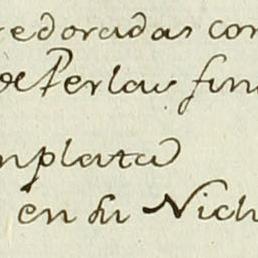 redoradas con
de Perlas fin
nplata
en su Nich